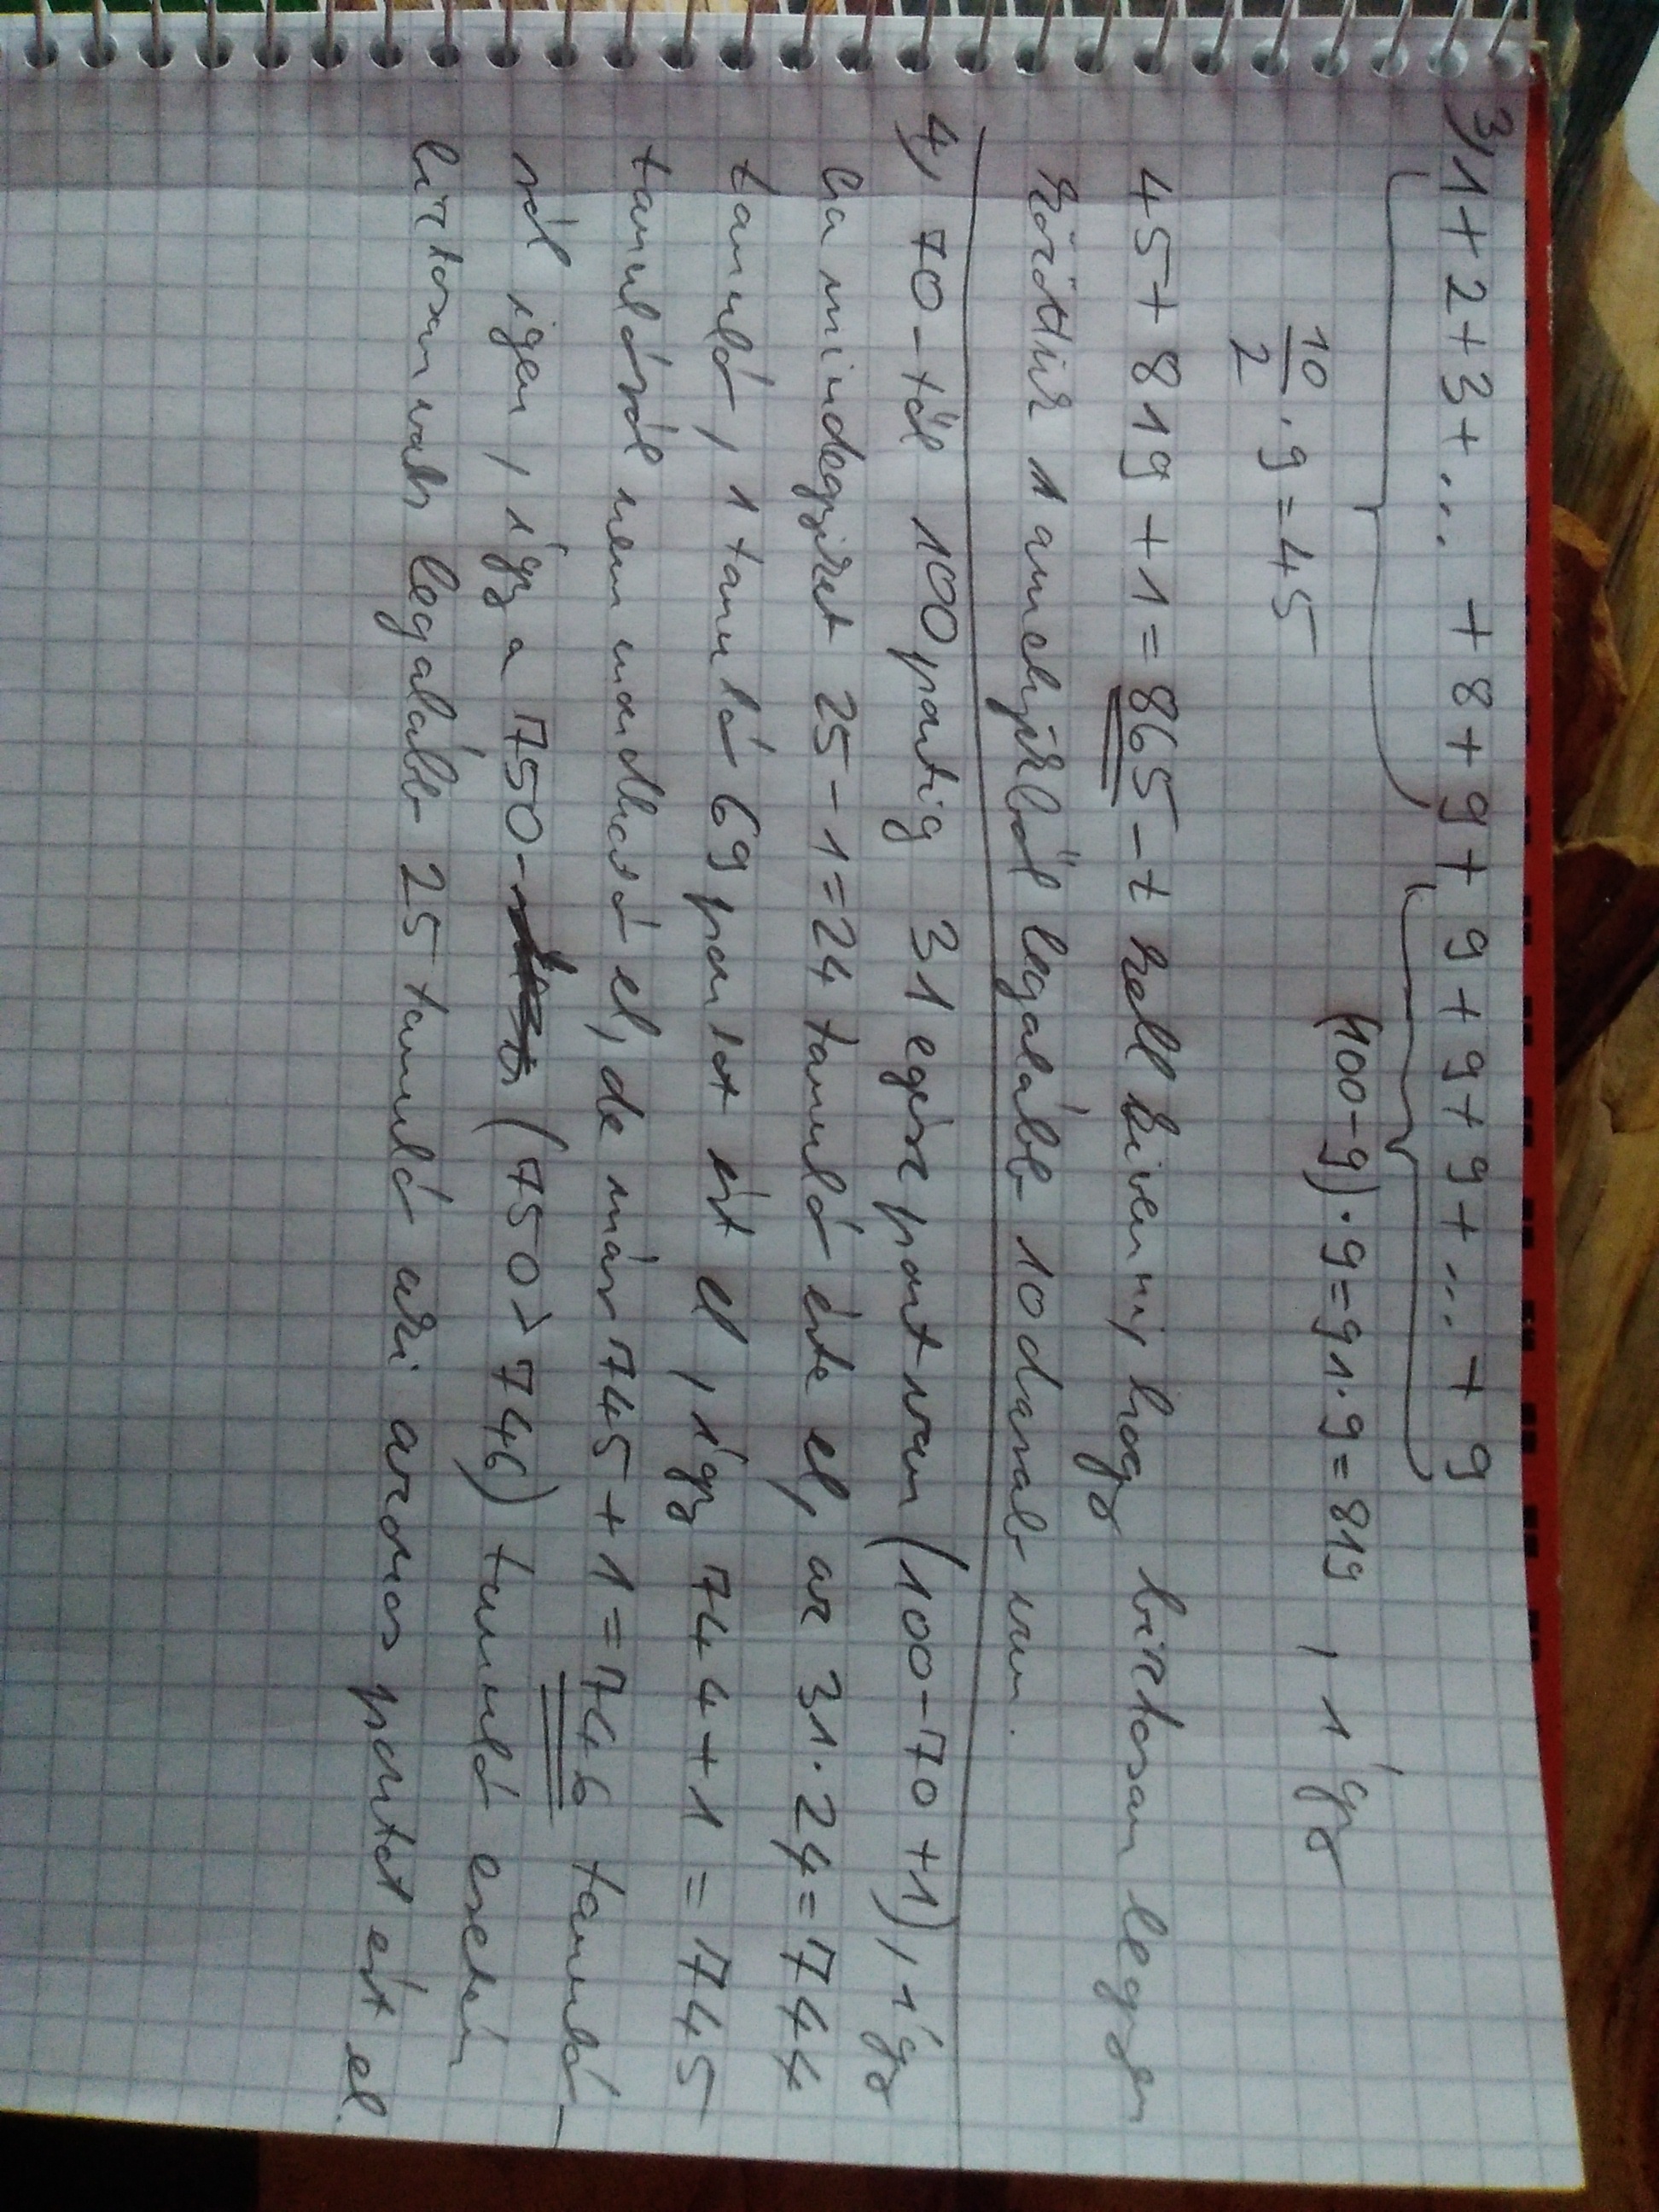 3, 1+2+3+... +8+9+9+9+9+9+...+9
10/2 · 9 = 45
(100-9)·9=91·9=819, így
45+819+1=865-t kell kivenni, hogy biztosan legyen
közöttük 1 amelyikből legalább 10 darab van.
4, 70-től 100 pontig 31 egész pont van (100-70+1), így
ha mindegyiket 25-1=24 tanuló érte el, az 31·24=744
tanuló, 1 tanuló 69 pontot ért el, így 744+1=745
tanulóról nem mondható el, de már 745+1=746 tanuló-
ról igen, így a 750- (750>746) tanuló esetén
biztosan van legalább 25 tanuló aki azonos pontot ért el.